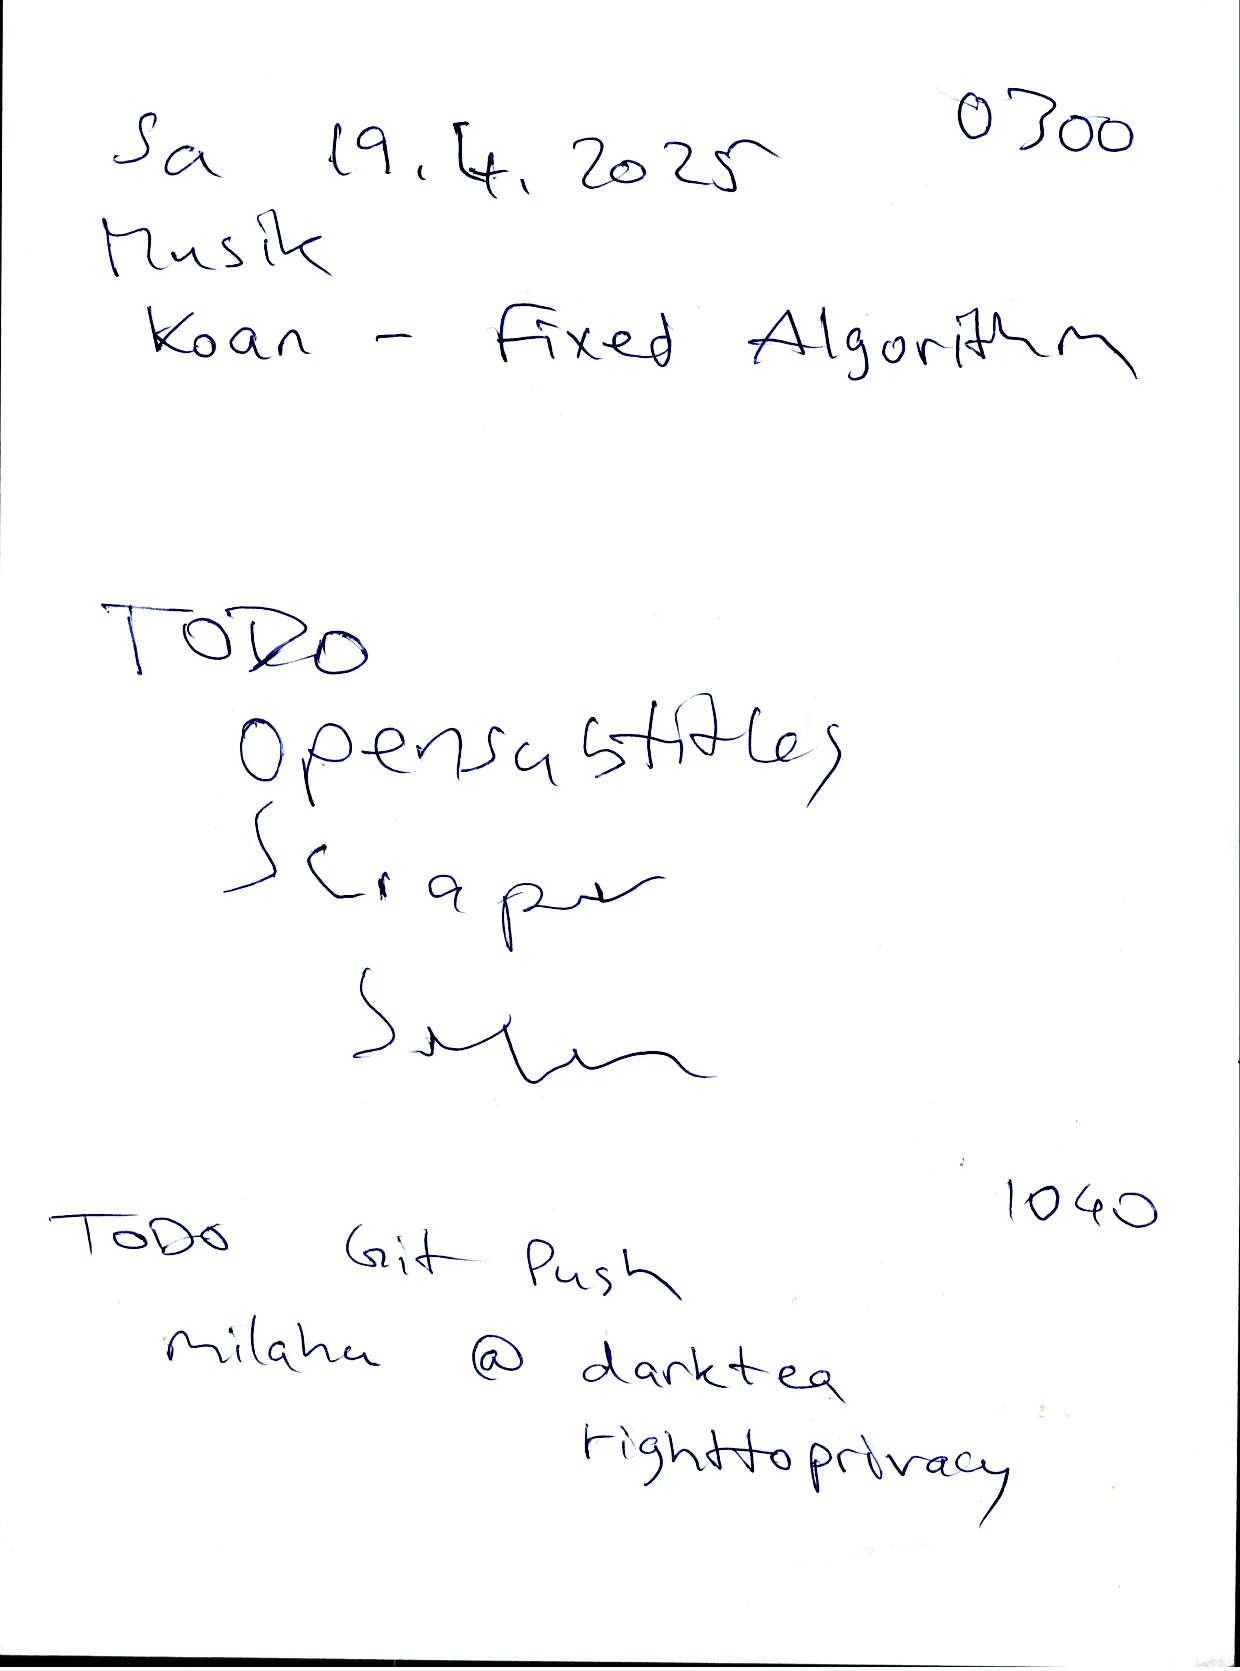 0300
Sa 19.4.2025
Musik
Koan - Fixed Algorithm
TODO
Opensubtitles
Scraper
1040
TODO Git Push
milahu @ darktea
righttoprivacy